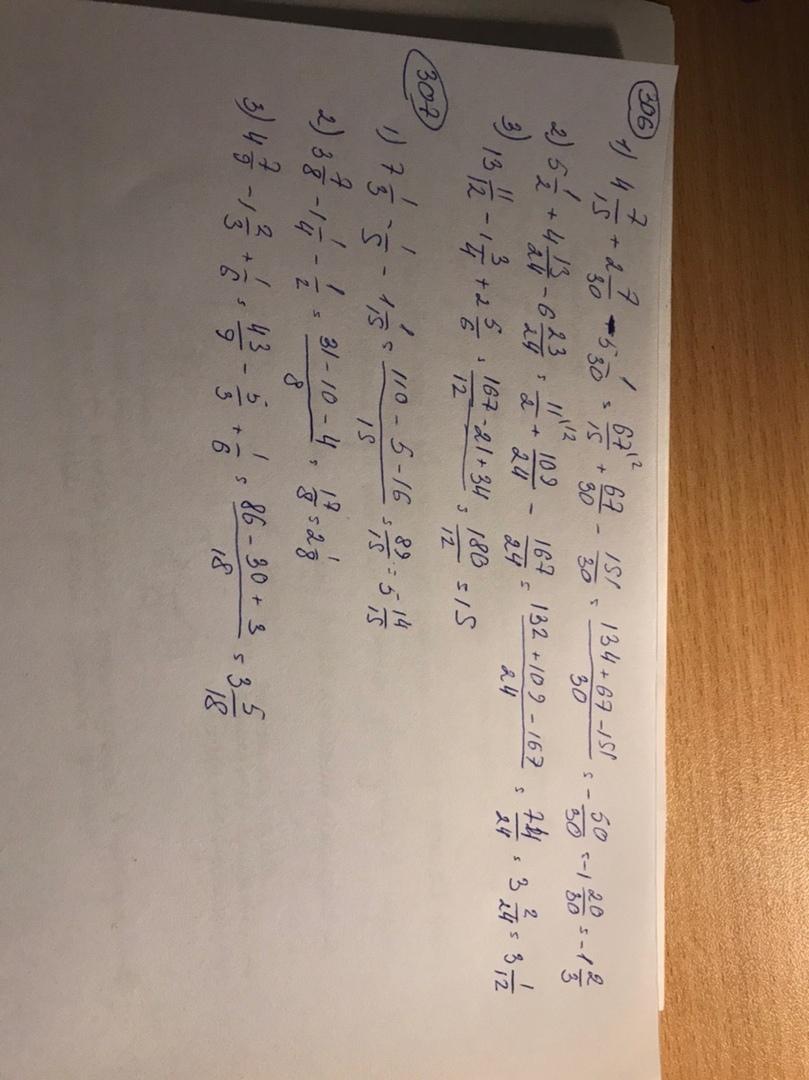 306
1) 4 7/15 + 2 7/30 - 5 1/30 = 67/15 \2 + 67/30 - 151/30 = (134+67-151)/30 = - 50/30 = -1 20/30 = -1 2/3
2) 5 1/2 + 4 13/24 - 6 23/24 = 11/2 \12 + 109/24 - 167/24 = (132+109-167)/24 = 74/24 = 3 2/24 = 3 1/12
3) 13 11/12 - 1 3/4 + 2 5/6 = (167-21+34)/12 = 180/12 = 15
307
1) 7 1/3 - 1/5 - 1 1/15 = (110-5-16)/15 = 89/15 = 5 14/15
2) 3 7/8 - 1 1/4 - 1/2 = (31-10-4)/8 = 17/8 = 2 1/8
3) 4 7/9 - 1 2/3 + 1/6 = 43/9 - 5/3 + 1/6 = (86-30+3)/18 = 3 5/18